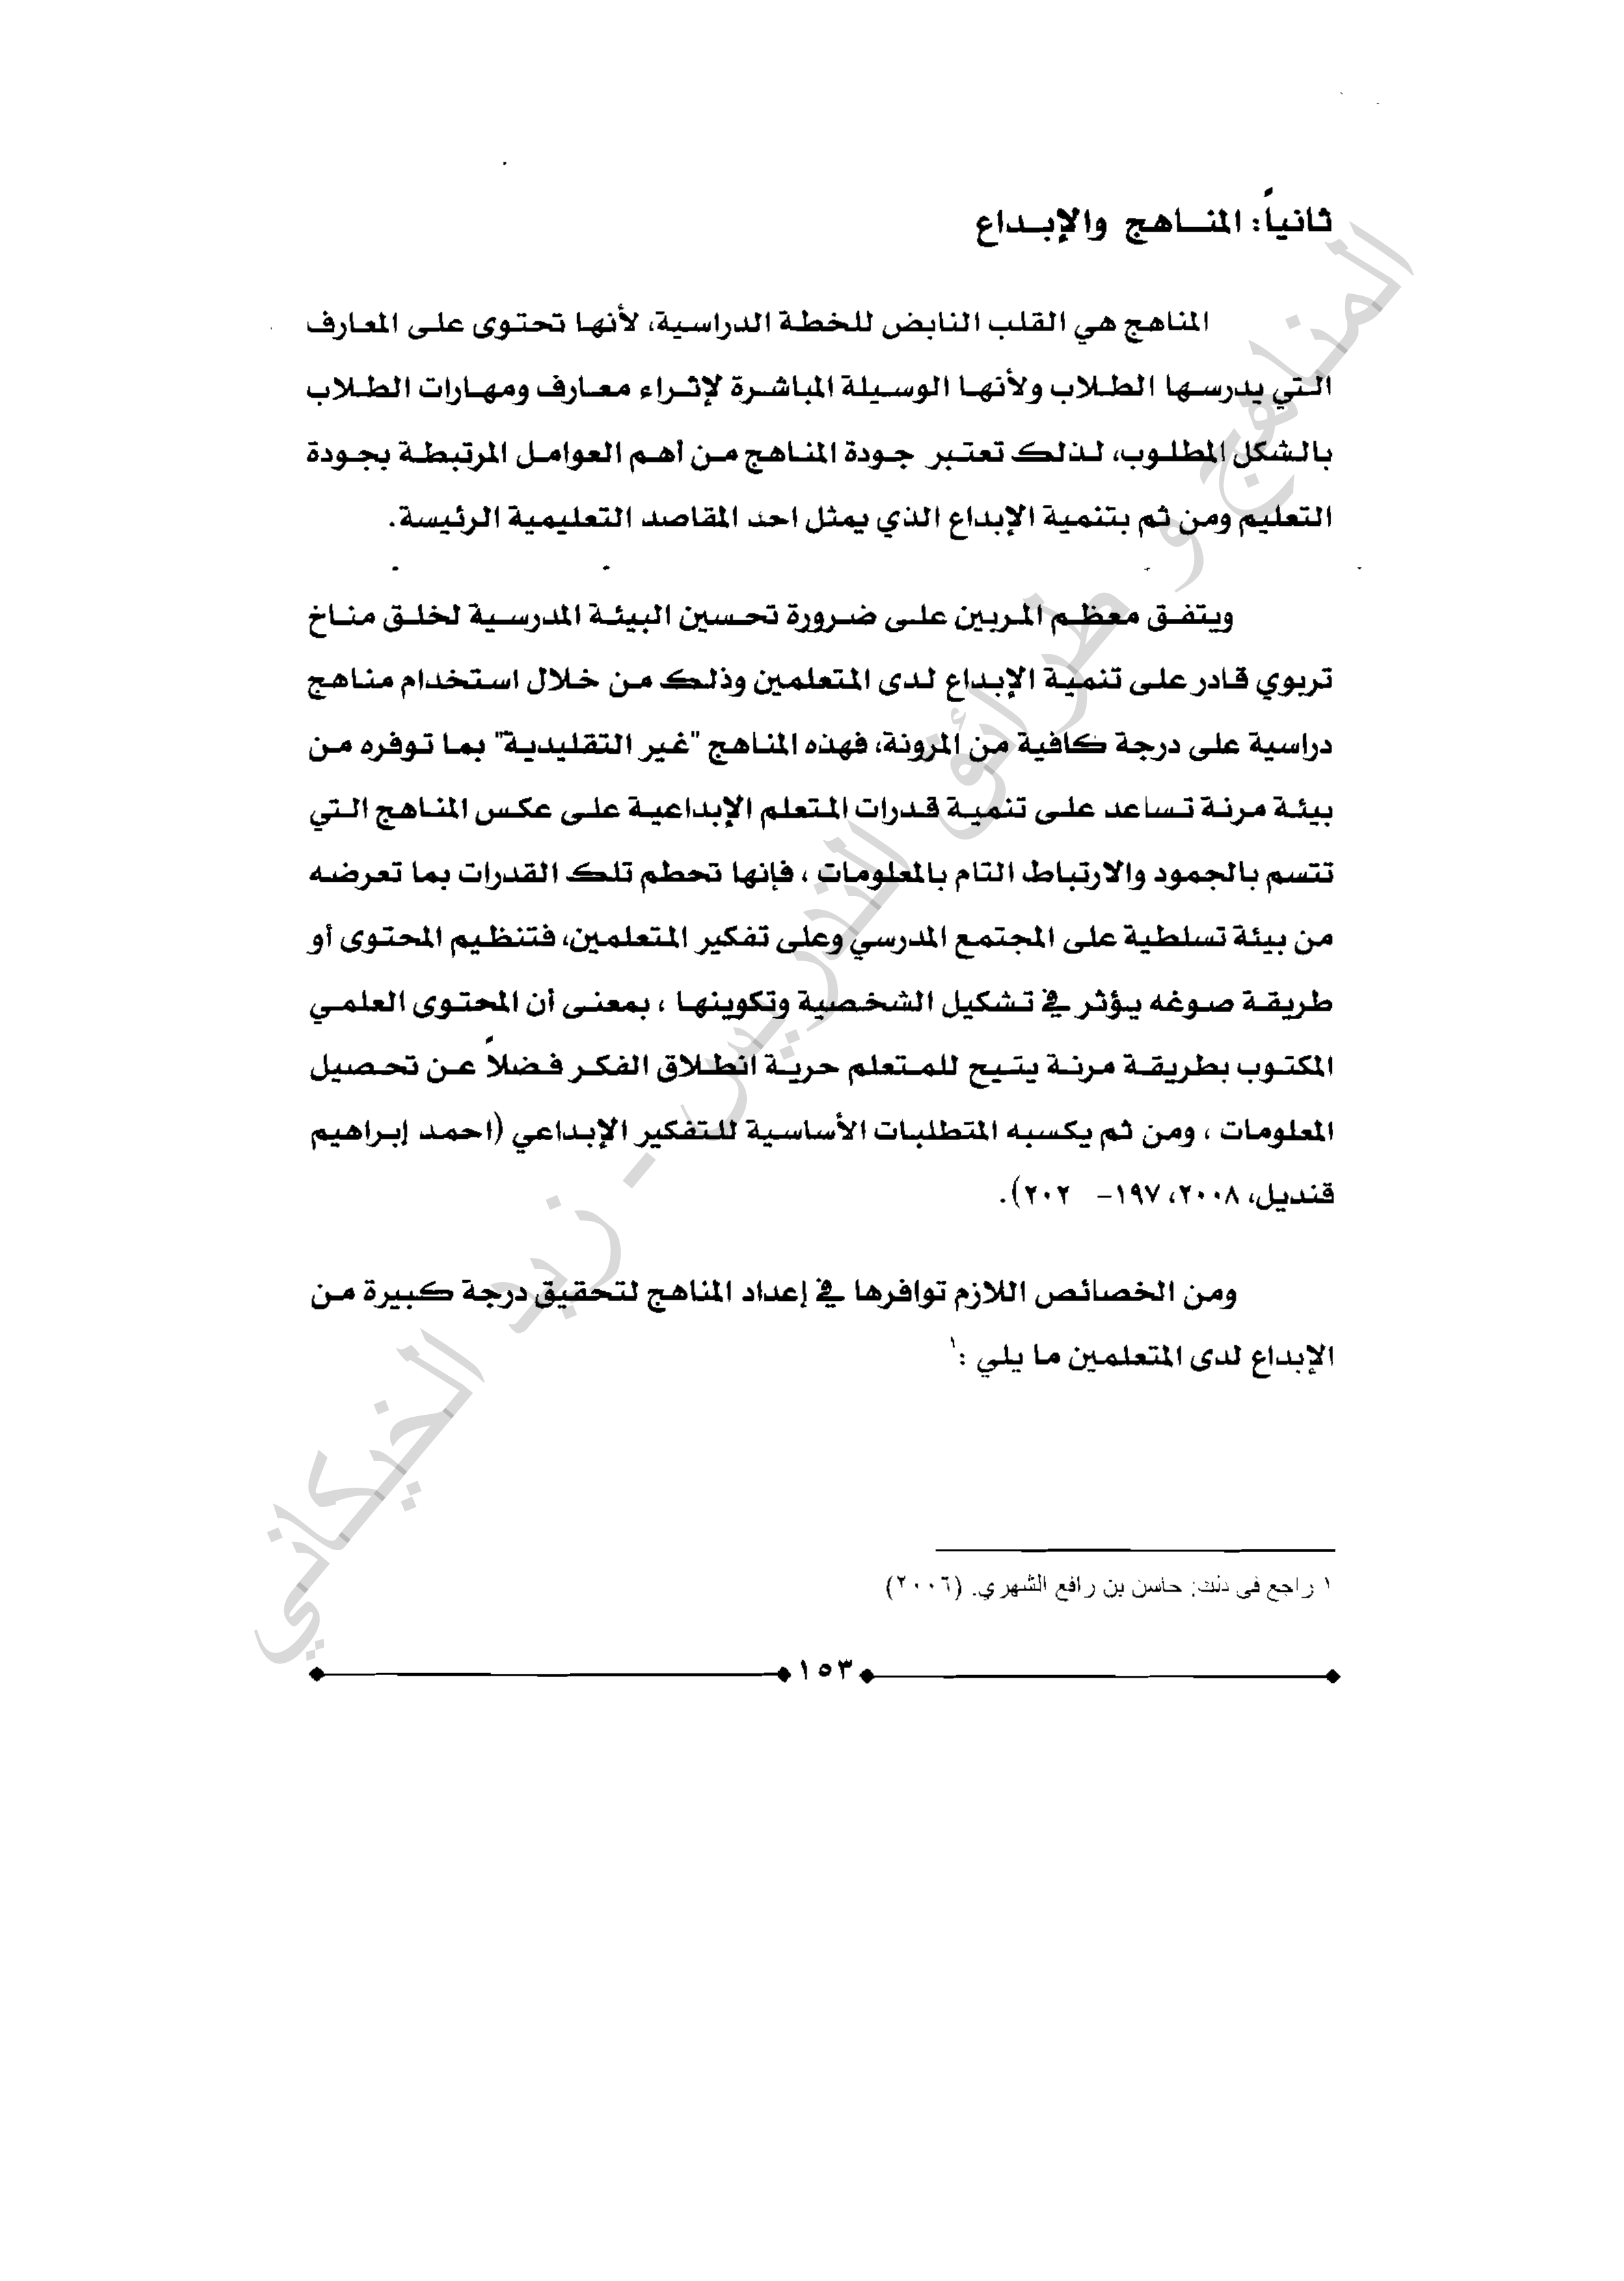 ثانياً: المناهج والإبداع
المناهج هي القلب النابض للخطة الدراسية، لأنها تحتوى على المعارف
التي يدرسها الطلاب ولأنها الوسيلة المباشرة لإثراء معارف ومهارات الطلاب
بالشكل المطلوب، لذلك تعتبر جودة المناهج من أهم العوامل المرتبطة بجودة
التعليم ومن ثم بتنمية الإبداع الذي يمثل احد المقاصد التعليمية الرئيسة.
ويتفق معظم المربين على ضرورة تحسين البيئة المدرسية لخلق مناخ
تربوي قادر على تنمية الإبداع لدى المتعلمين وذلك من خلال استخدام مناهج
دراسية على درجة كافية من المرونة، فهذه المناهج "غير التقليدية" بما توفره من
بيئة مرنة تساعد على تنمية قدرات المتعلم الإبداعية على عكس المناهج التي
تتسم بالجمود والارتباط التام بالمعلومات ، فإنها تحطم تلك القدرات بما تعرضه
من بيئة تسلطية على المجتمع المدرسي وعلى تفكير المتعلمين، فتنظيم المحتوى أو
طريقة صوغه يؤثر في تشكيل الشخصية وتكوينها ، بمعنى أن المحتوى العلمي
المكتوب بطريقة مرنة يتيح للمتعلم حرية انطلاق الفكر فضلاً عن تحصيل
المعلومات ، ومن ثم يكسبه المتطلبات الأساسية للتفكير الإبداعي (احمد إبراهيم
قنديل، ٢٠٠٨، ١٩٧- ٢٠٢).
ومن الخصائص اللازم توافرها في إعداد المناهج لتحقيق درجة كبيرة من
الإبداع لدى المتعلمين ما يلي :١
١ راجع في ذلك: حاسن بن رافع الشهري. (٢٠٠٦)
١٥٣
المناهج و طرائق التدريس - زيد الخيكاني